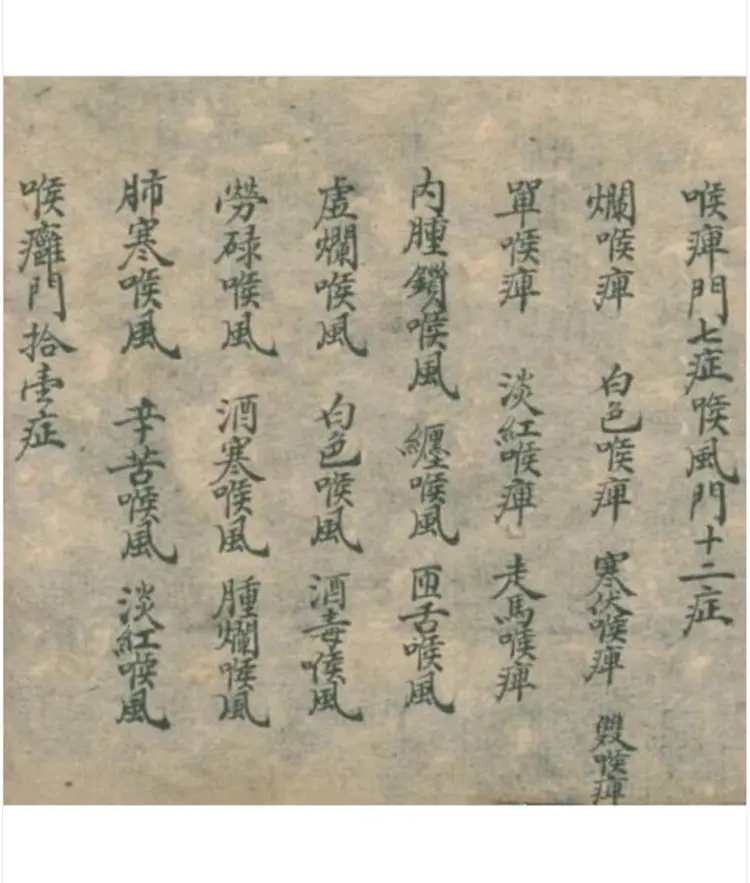 喉痺門七症喉風門十二症
爛喉痺 白色喉痺 寒伏喉痺 雙喉痺
單喉痺 淡紅喉痺 走馬喉痺
內腫鎖喉風 纏喉風 匝舌喉風
虛爛喉風 白色喉風 酒毒喉風
勞碌喉風 酒寒喉風 腫爛喉風
肺寒喉風 辛苦喉風 淡紅喉風
喉癰門拾壹症